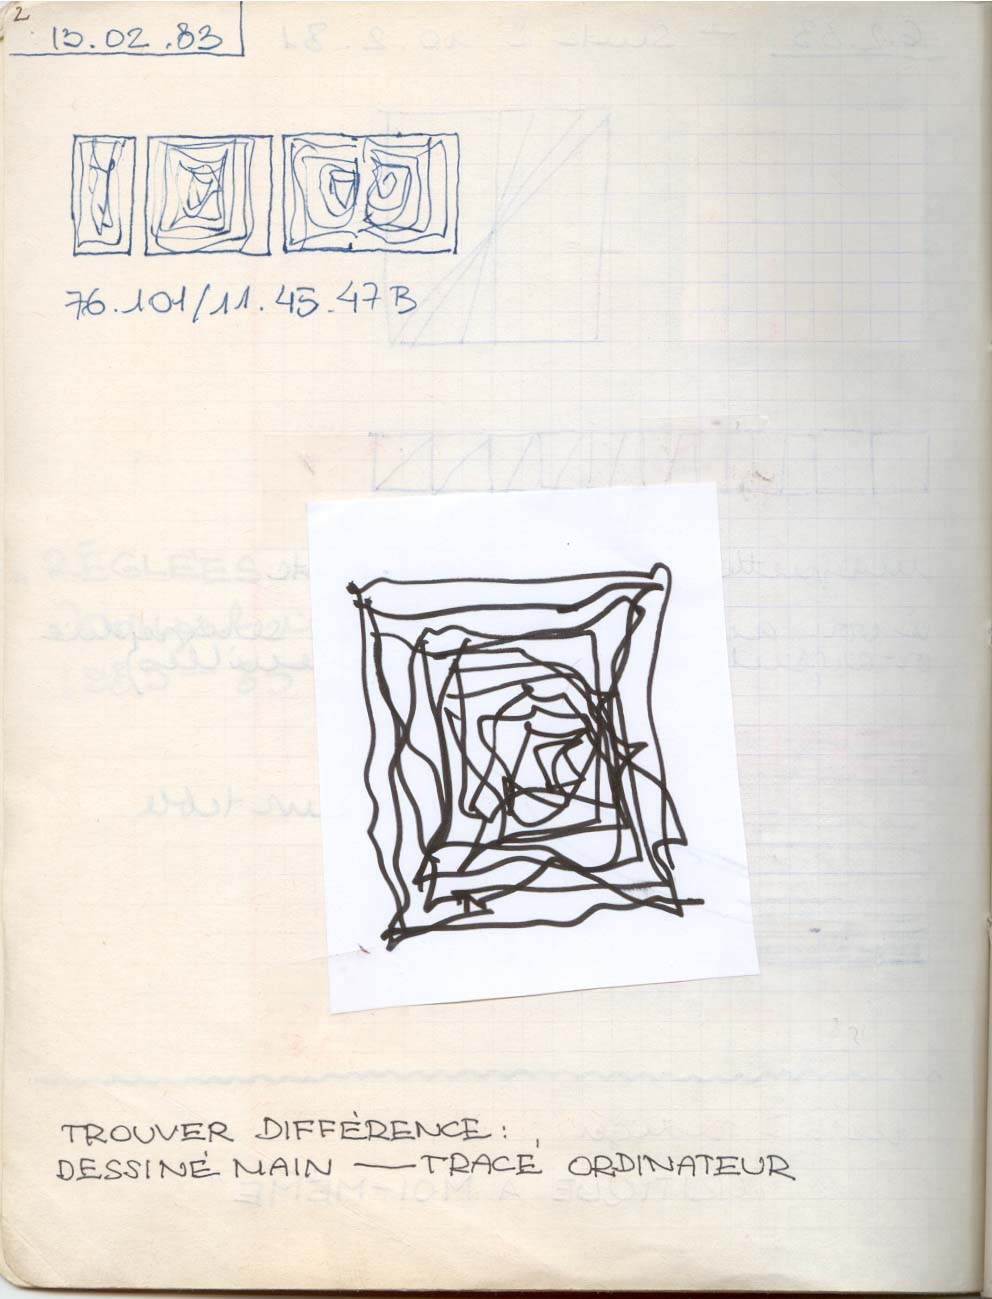 2
13.02.83
76.101/11.45.47B
TROUVER DIFFÉRENCE:
DESSINÉ MAIN — TRACÉ ORDINATEUR